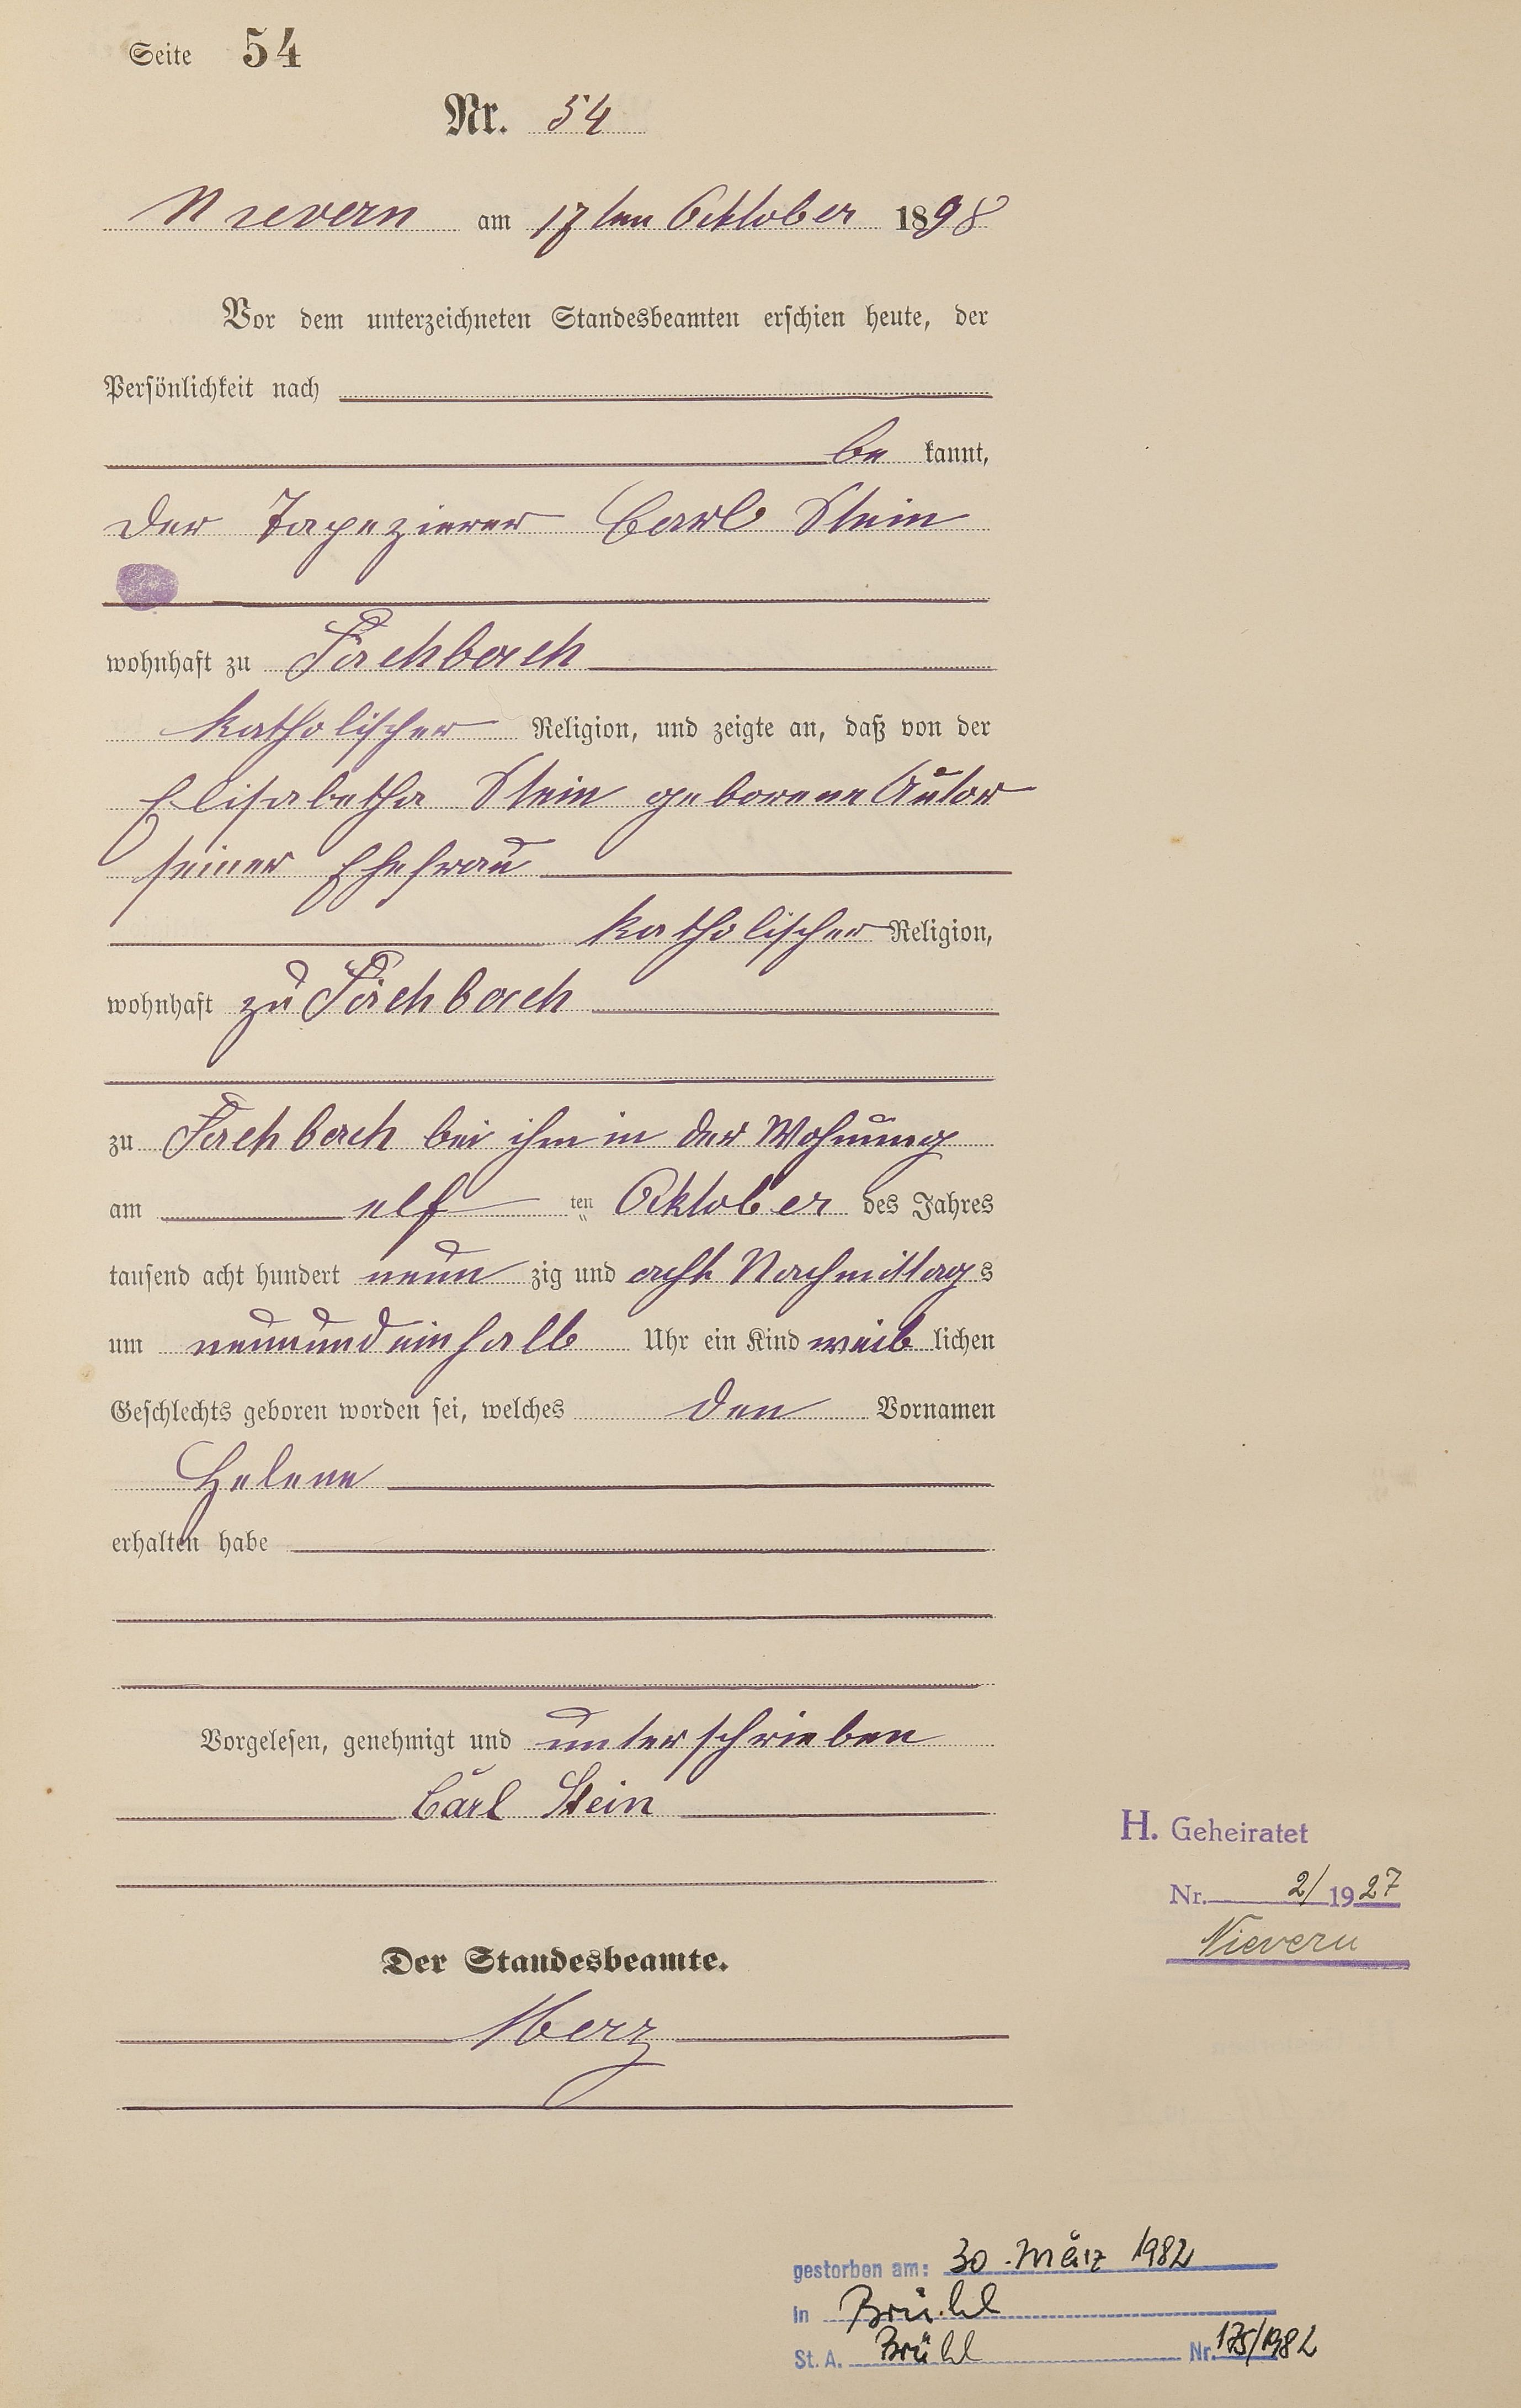 Seite 54
Nr. 54
Nievern am 17ten Oktober 1898
Vor dem unterzeichneten Standesbeamten erschien heute, der
Persönlichkeit nach
be kannt,
der Tapezierer Carl Stein
wohnhaft zu Fachbach
katholischer Religion, und zeigte an, daß von der
Elisabetha Stein geborene Autor
seiner Ehefrau
katholischer Religion,
wohnhaft zu Fachbach
zu Fachbach bei ihm in der Wohnung
am elf ten Oktober des Jahres
tausend acht hundert neun zig und acht Nachmittags
um neunundeinhalb Uhr ein Kind weib lichen
Geschlechts geboren worden sei, welches den Vornamen
Helene
erhalten habe
Vorgelesen, genehmigt und unterschrieben
Carl Stein
H. Geheiratet
Nr. 2/1927
Nievern
Der Standesbeamte.
Merz
gestorben am: 30. März 1982
in Brühl
St. A. Brühl Nr. 175/1982